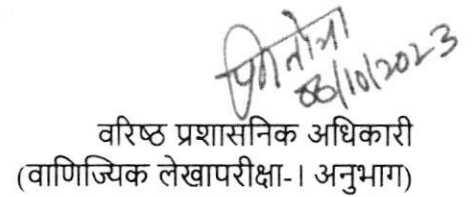 06/10/2023
वरिष्ठ प्रशासनिक अधिकारी
(वाणिज्यिक लेखापरीक्षा-I अनुभाग)